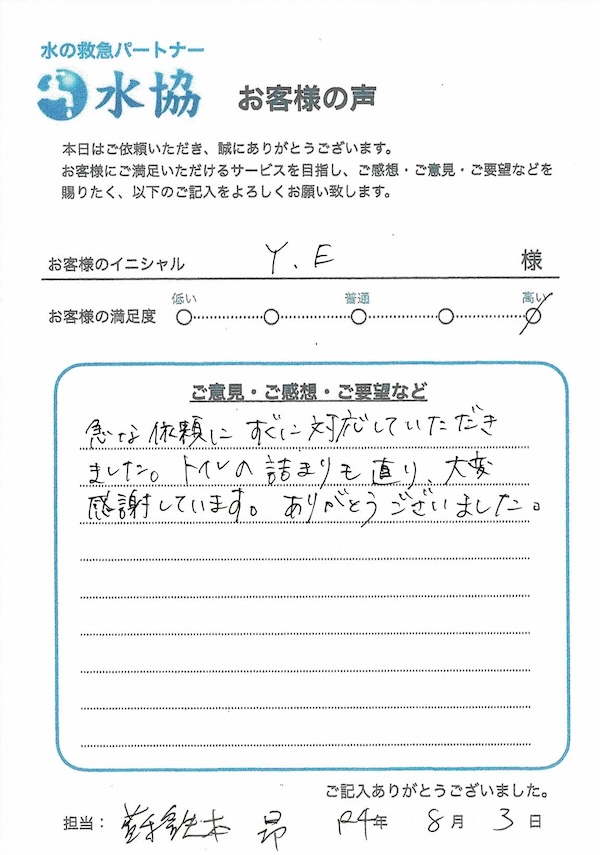 水の救急パートナー
水協 お客様の声
本日はご依頼いただき、誠にありがとうございます。
お客様にご満足いただけるサービスを目指し、ご感想・ご意見・ご要望などを
賜りたく、以下のご記入をよろしくお願い致します。
お客様のイニシャル Y.E 様
低い 普通 高い
お客様の満足度
ご意見・ご感想・ご要望など
急な依頼にすぐに対応していただき
ました。トイレの詰まりも直り、大変
感謝しています。ありがとうございました。
ご記入ありがとうございました。
担当: 本 昴 R4年 8月 3日